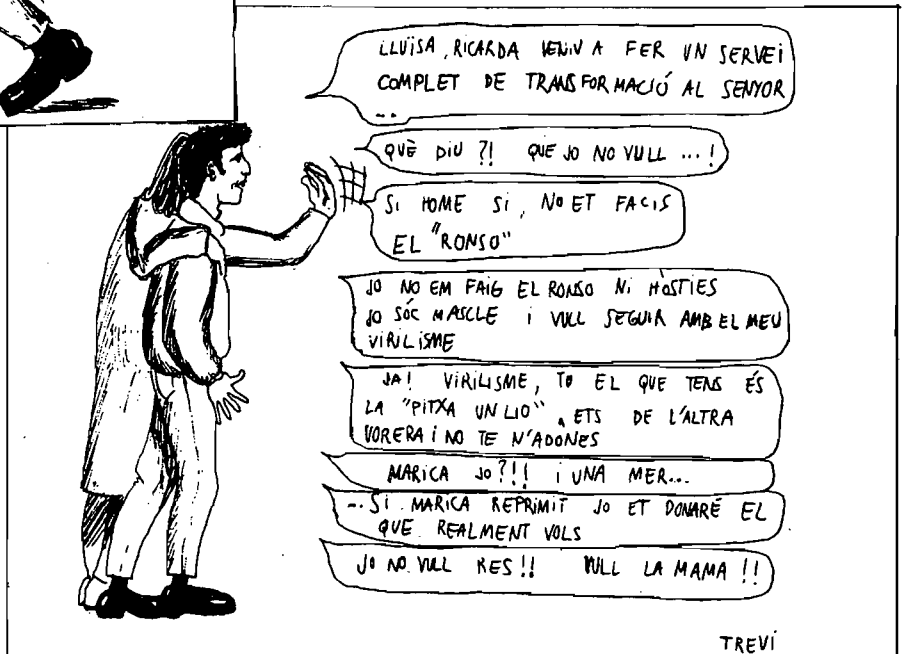 LLUÏSA, RICARDA VENIU A FER UN SERVEI
COMPLET DE TRANSFORMACIÓ AL SENYOR
...
QUÈ DIU ?! QUE JO NO VULL ...!
SI HOME SI, NO ET FACIS
EL "RONSO"
JO NO EM FAIG EL RONSO NI HÒSTIES
JO SÓC MASCLE I VULL SEGUIR AMB EL MEU
VIRILISME
JA! VIRILISME, TU EL QUE TENS ÉS
LA "PITXA UN LIO", ETS DE L'ALTRA
VORERA I NO TE N'ADONES
MARICA JO?!! I UNA MER...
... SI MARICA REPRIMIT JO ET DONARÉ EL
QUE REALMENT VOLS
JO NO VULL RES!! VULL LA MAMA!!
TREVÍ